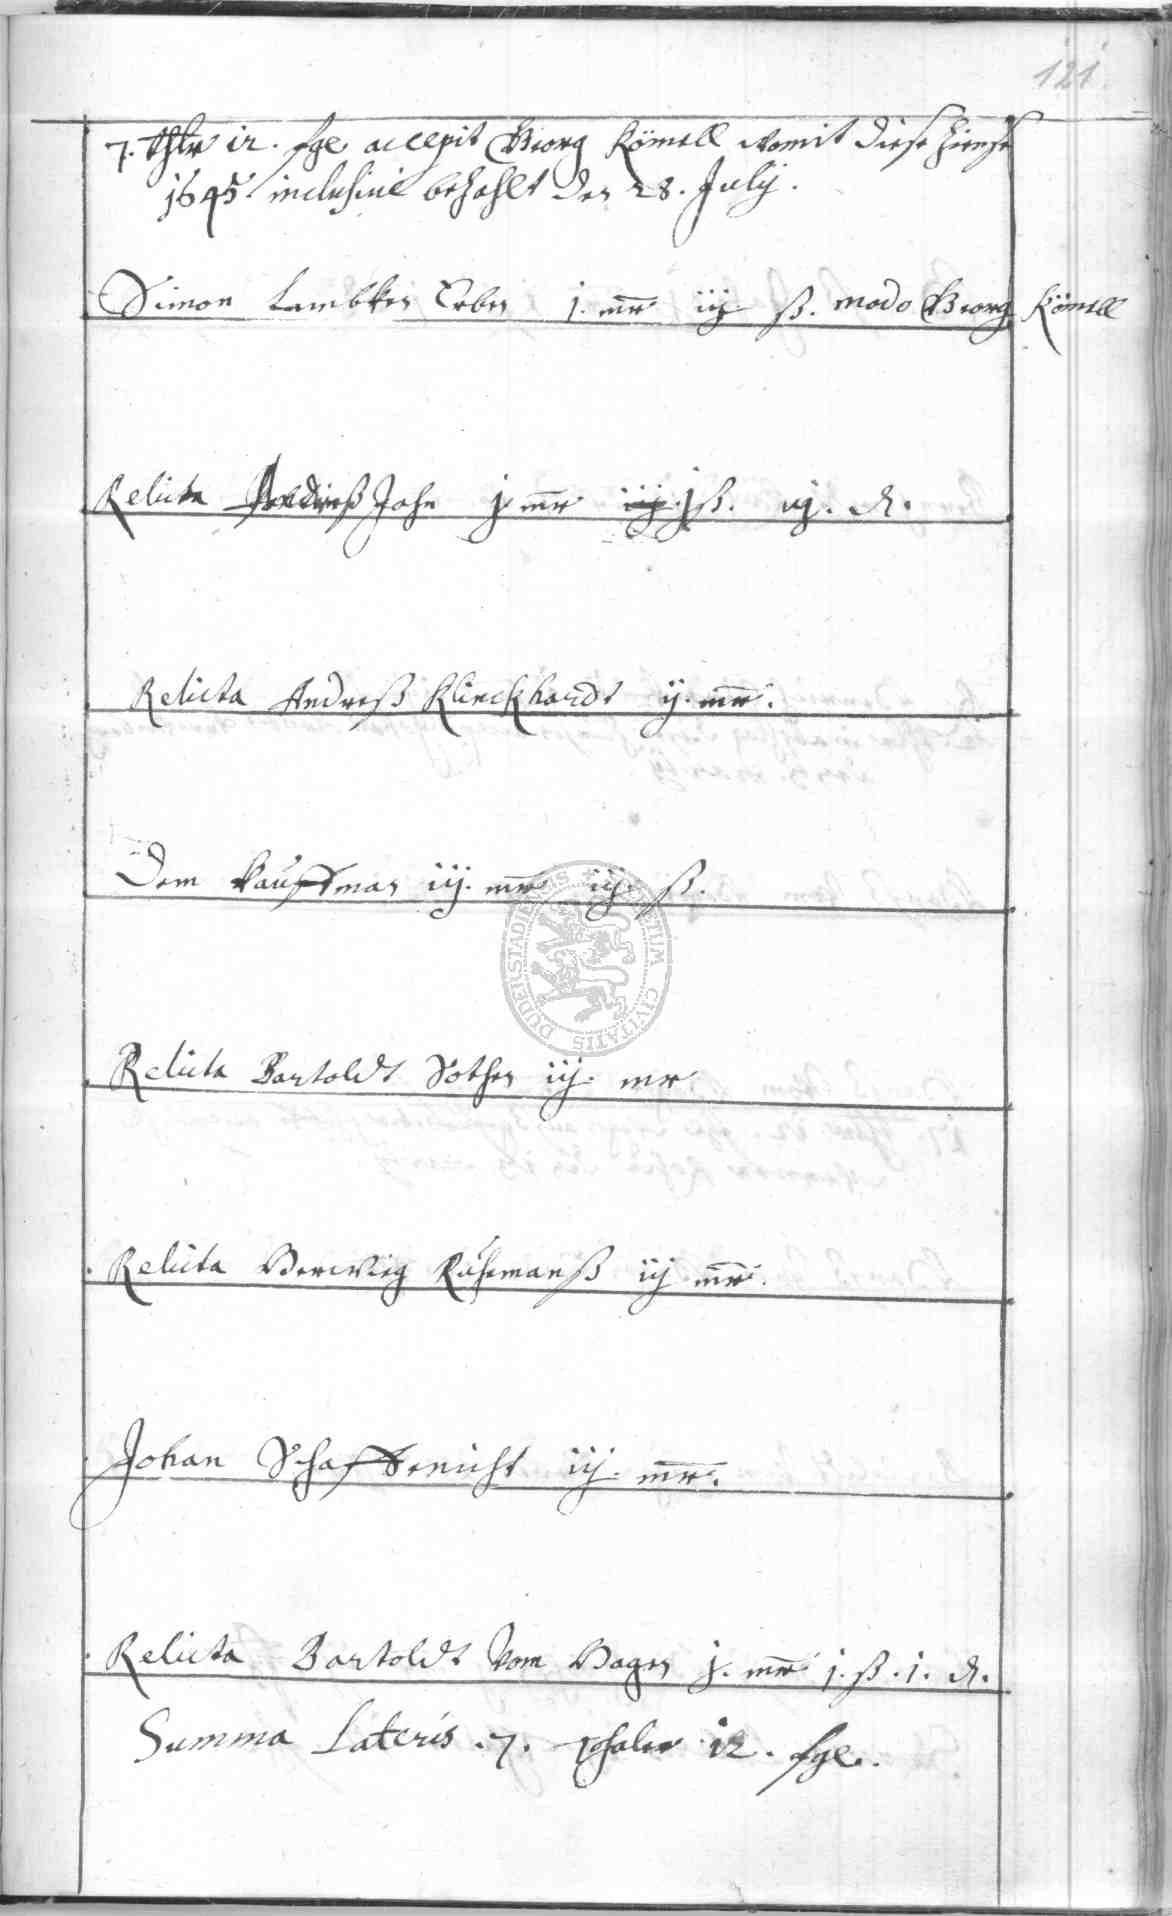 121
7. thlr 12. sgl accepit Georg Römell womit diese Zinse
1645. inclusiue bezahlt den 28. July.
Simon Lambken Erben j. mr iij ß. modo Georg Römell
Relicta Andreß Jahn j mr iij jß. vj. d.
Relicta Andreß Klinckhardt ij. mr.
Dem Kauffman iij. mr iij. ß.
Relicta Bartoldt Nothen iij. mr.
Relicta Herwieg Rühemanß iij mr.
Johan Schaffenicht iij. mr.
Relicta Bartoldt Vom Hagen j. mr j. ß. j. d.
Summa Lateris .7. thaler 12. sgl.
DUDERSTADIENSIS CIVITATIS